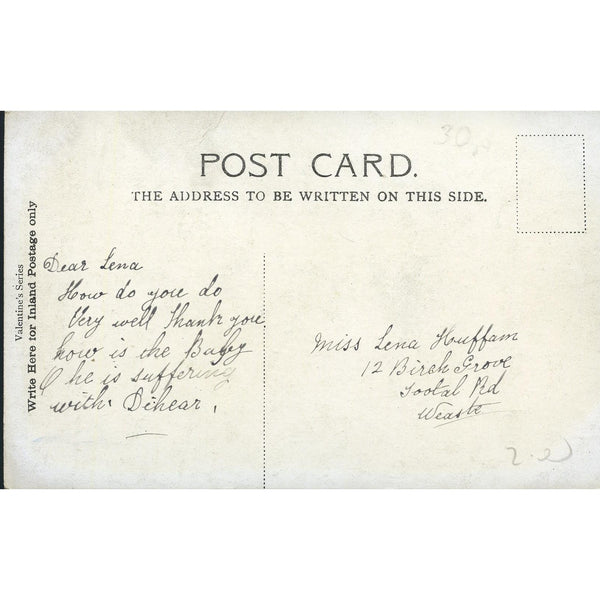 30
POST CARD.
THE ADDRESS TO BE WRITTEN ON THIS SIDE.
Valentine's Series
Write Here for Inland Postage only
Dear Lena
How do you do
Very well thank you
how is the Babey
O he is suffering
with Dihear.
Miss Lena Huffam
12 Birch Grove
Tootal Rd
Weaste